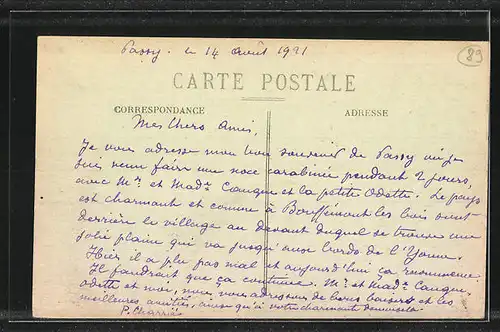 Passy. le 14 Août 1921
89
CARTE POSTALE
CORRESPONDANCE
ADRESSE
Mes Chers Amis,
Je vous adresse mon bon souvenir de Passy où je
suis venu faire une noce carabinée pendant 2 jours,
avec Mr. et Made et la petite Odette. Le pays
est charmant et comme à Bouffémont les bois sont
derrière le village au devant duquel se trouve une
jolie plaine qui va jusqu'aux bords de l'Yonne.
Hier il a plu pas mal et aujourd'hui ça recommence
Il faudrait que ça continue. Mr. et Made
Odette et moi, nous vous adressons de bons baisers et les
meilleures amitiés, ainsi qu'à votre charmante demoiselle.
P.